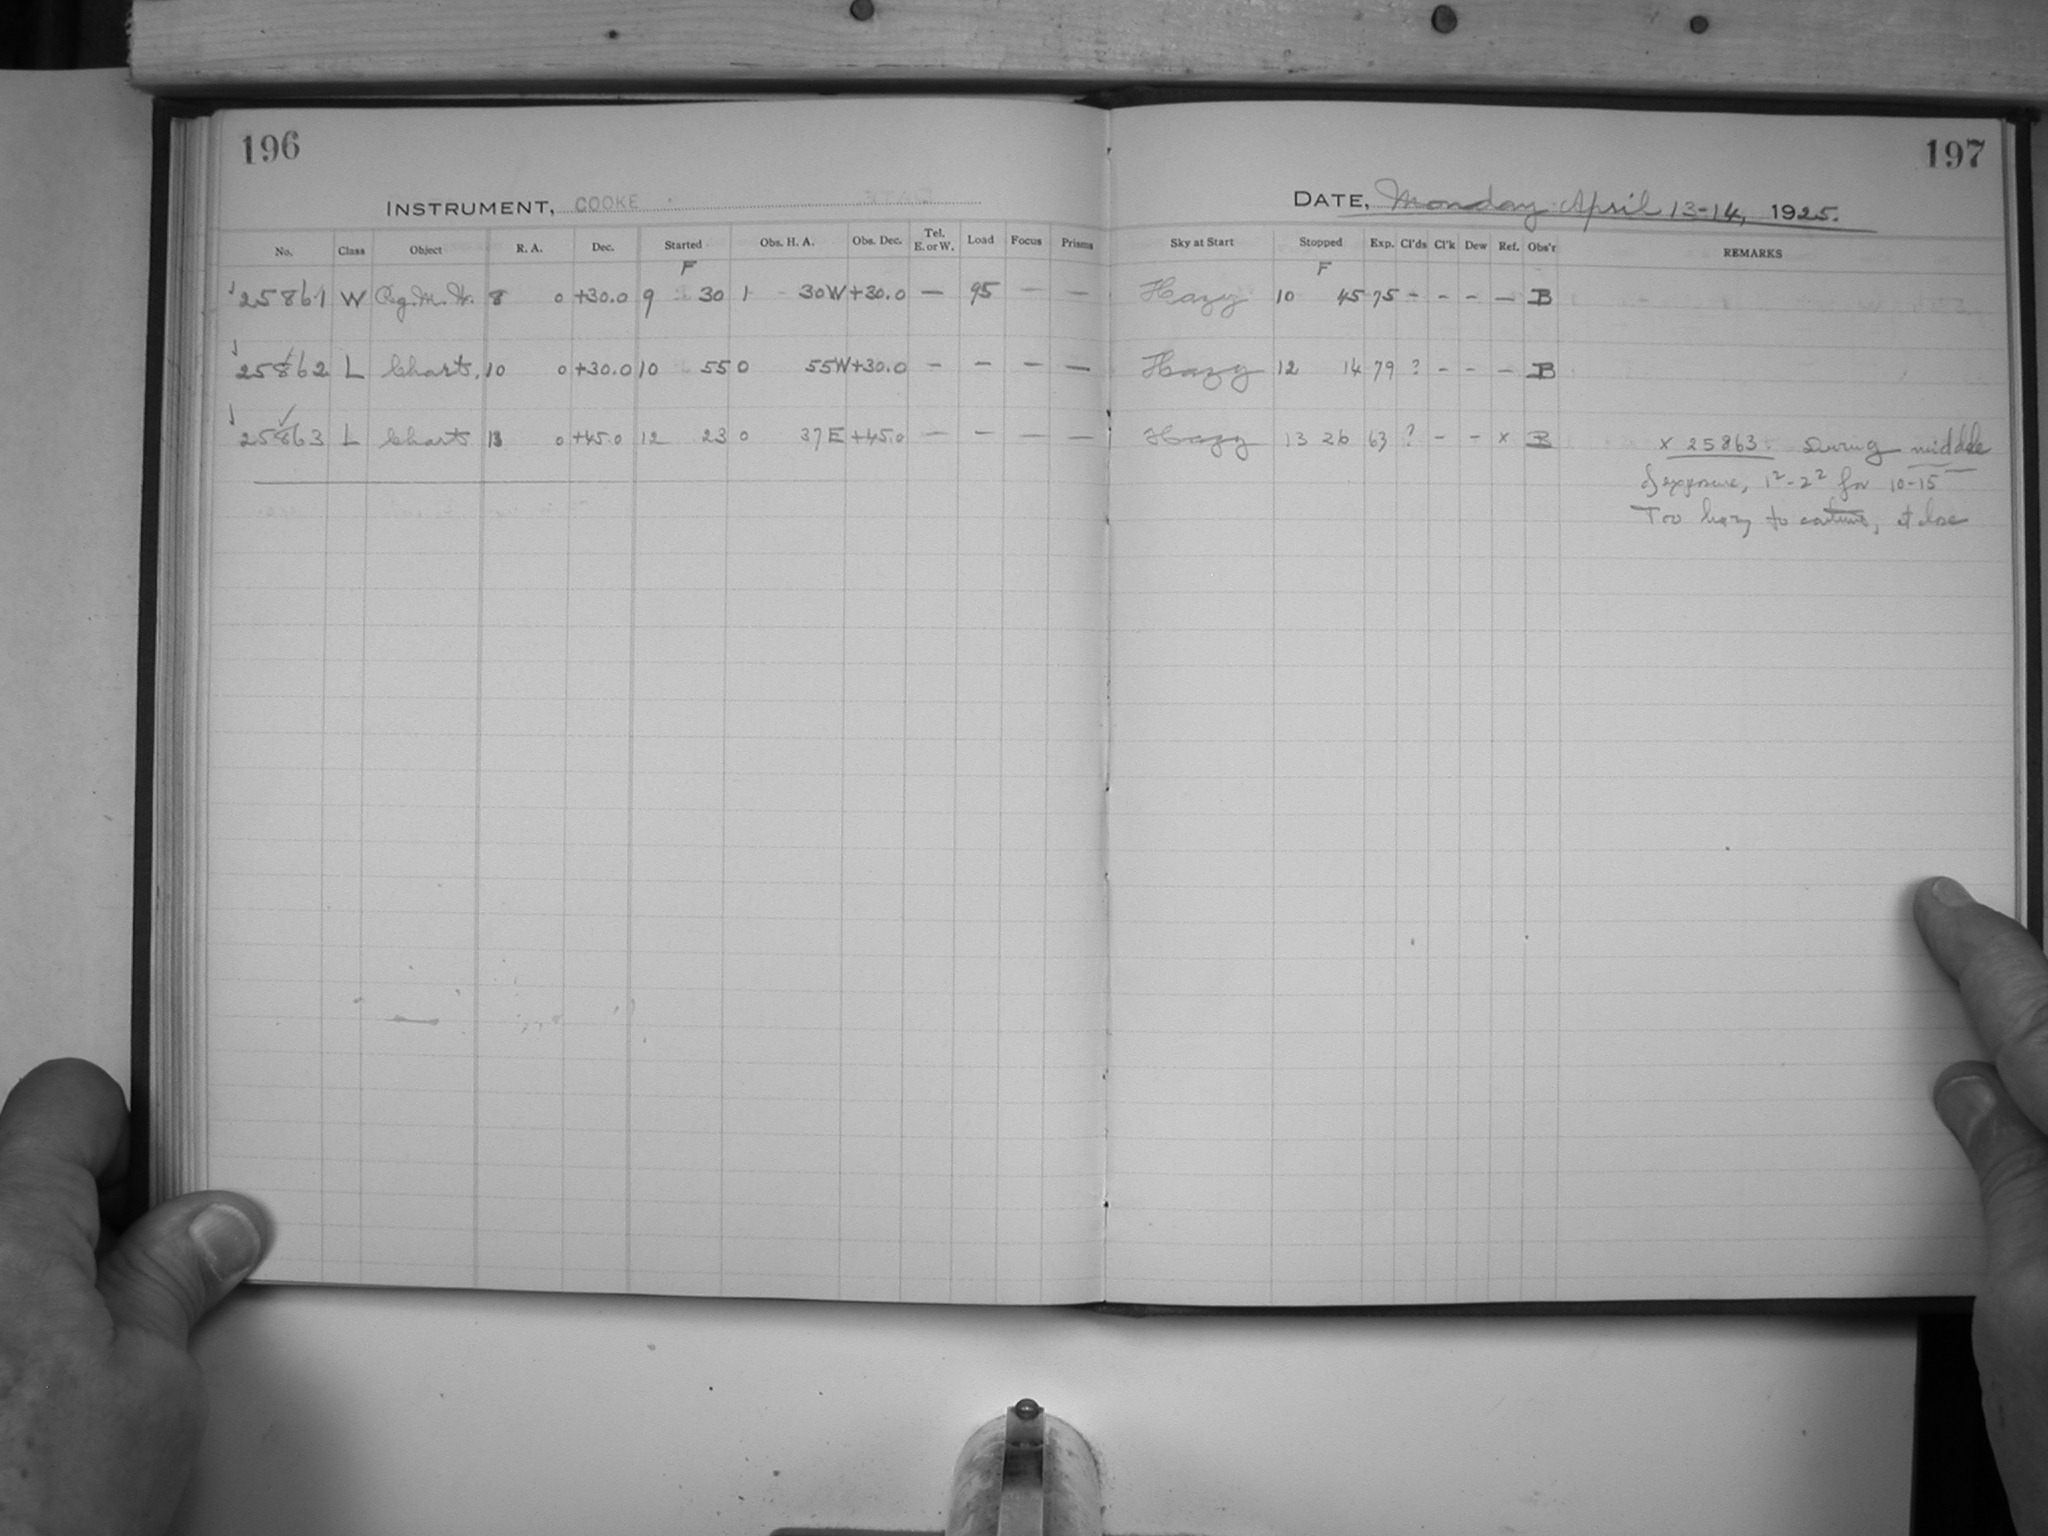 196
INSTRUMENT, COOKE
No. Class Object R. A. Dec. Started Obs. H. A. Obs. Dec. Tel. E. or W. Load Focus Prisms
F
25861 W Reg. M. W. 8 0 +30.0 9 30 1 30W +30.0 — 95 — —
25862 L Charts. 10 0 +30.0 10 55 0 55W +30.0 — — — —
25863 L Charts 13 0 +45.0 12 23 0 37E +45.0 — — — —
197
DATE, Monday April 13-14, 1925.
Sky at Start Stopped Exp. Cl'ds Cl'k Dew Ref. Obs'r REMARKS
F
Hazy 10 45 75 - - - — B
Hazy 12 14 79 ? - - - B
Hazy 13 26 63 ? - - x B x 25863. During middle
of exposure, 1²-2² for 10-15
Too hazy to continue, at close